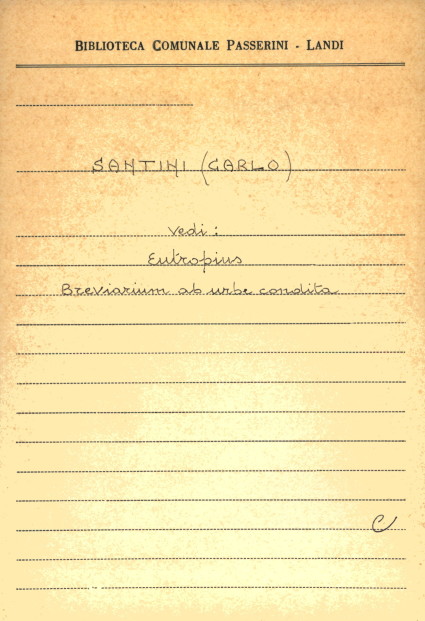 BIBLIOTECA COMUNALE PASSERINI - LANDI
SANTINI (CARLO)
Vedi:
Eutropius
Breviarium ab urbe condita
C